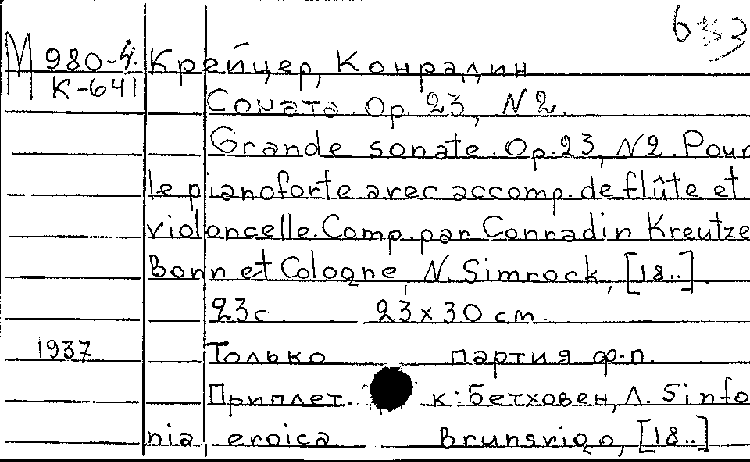 М 980-4. Крейцер, Конрадин
К-641
Соната Op. 23, N 2.
Grande sonate. Op. 23, N 2. Pour
le pianoforte avec accomp. de flûte et
violoncelle. Comp. par Conradin Kreutze
Bonn et Cologne, N. Simrock, [18..].
23 с 23 x 30 см.
1937 Только партия ф-п.
Приплет. к: Бетховен, Л. Sinfo
nia eroica Brunsvigo, [18..]